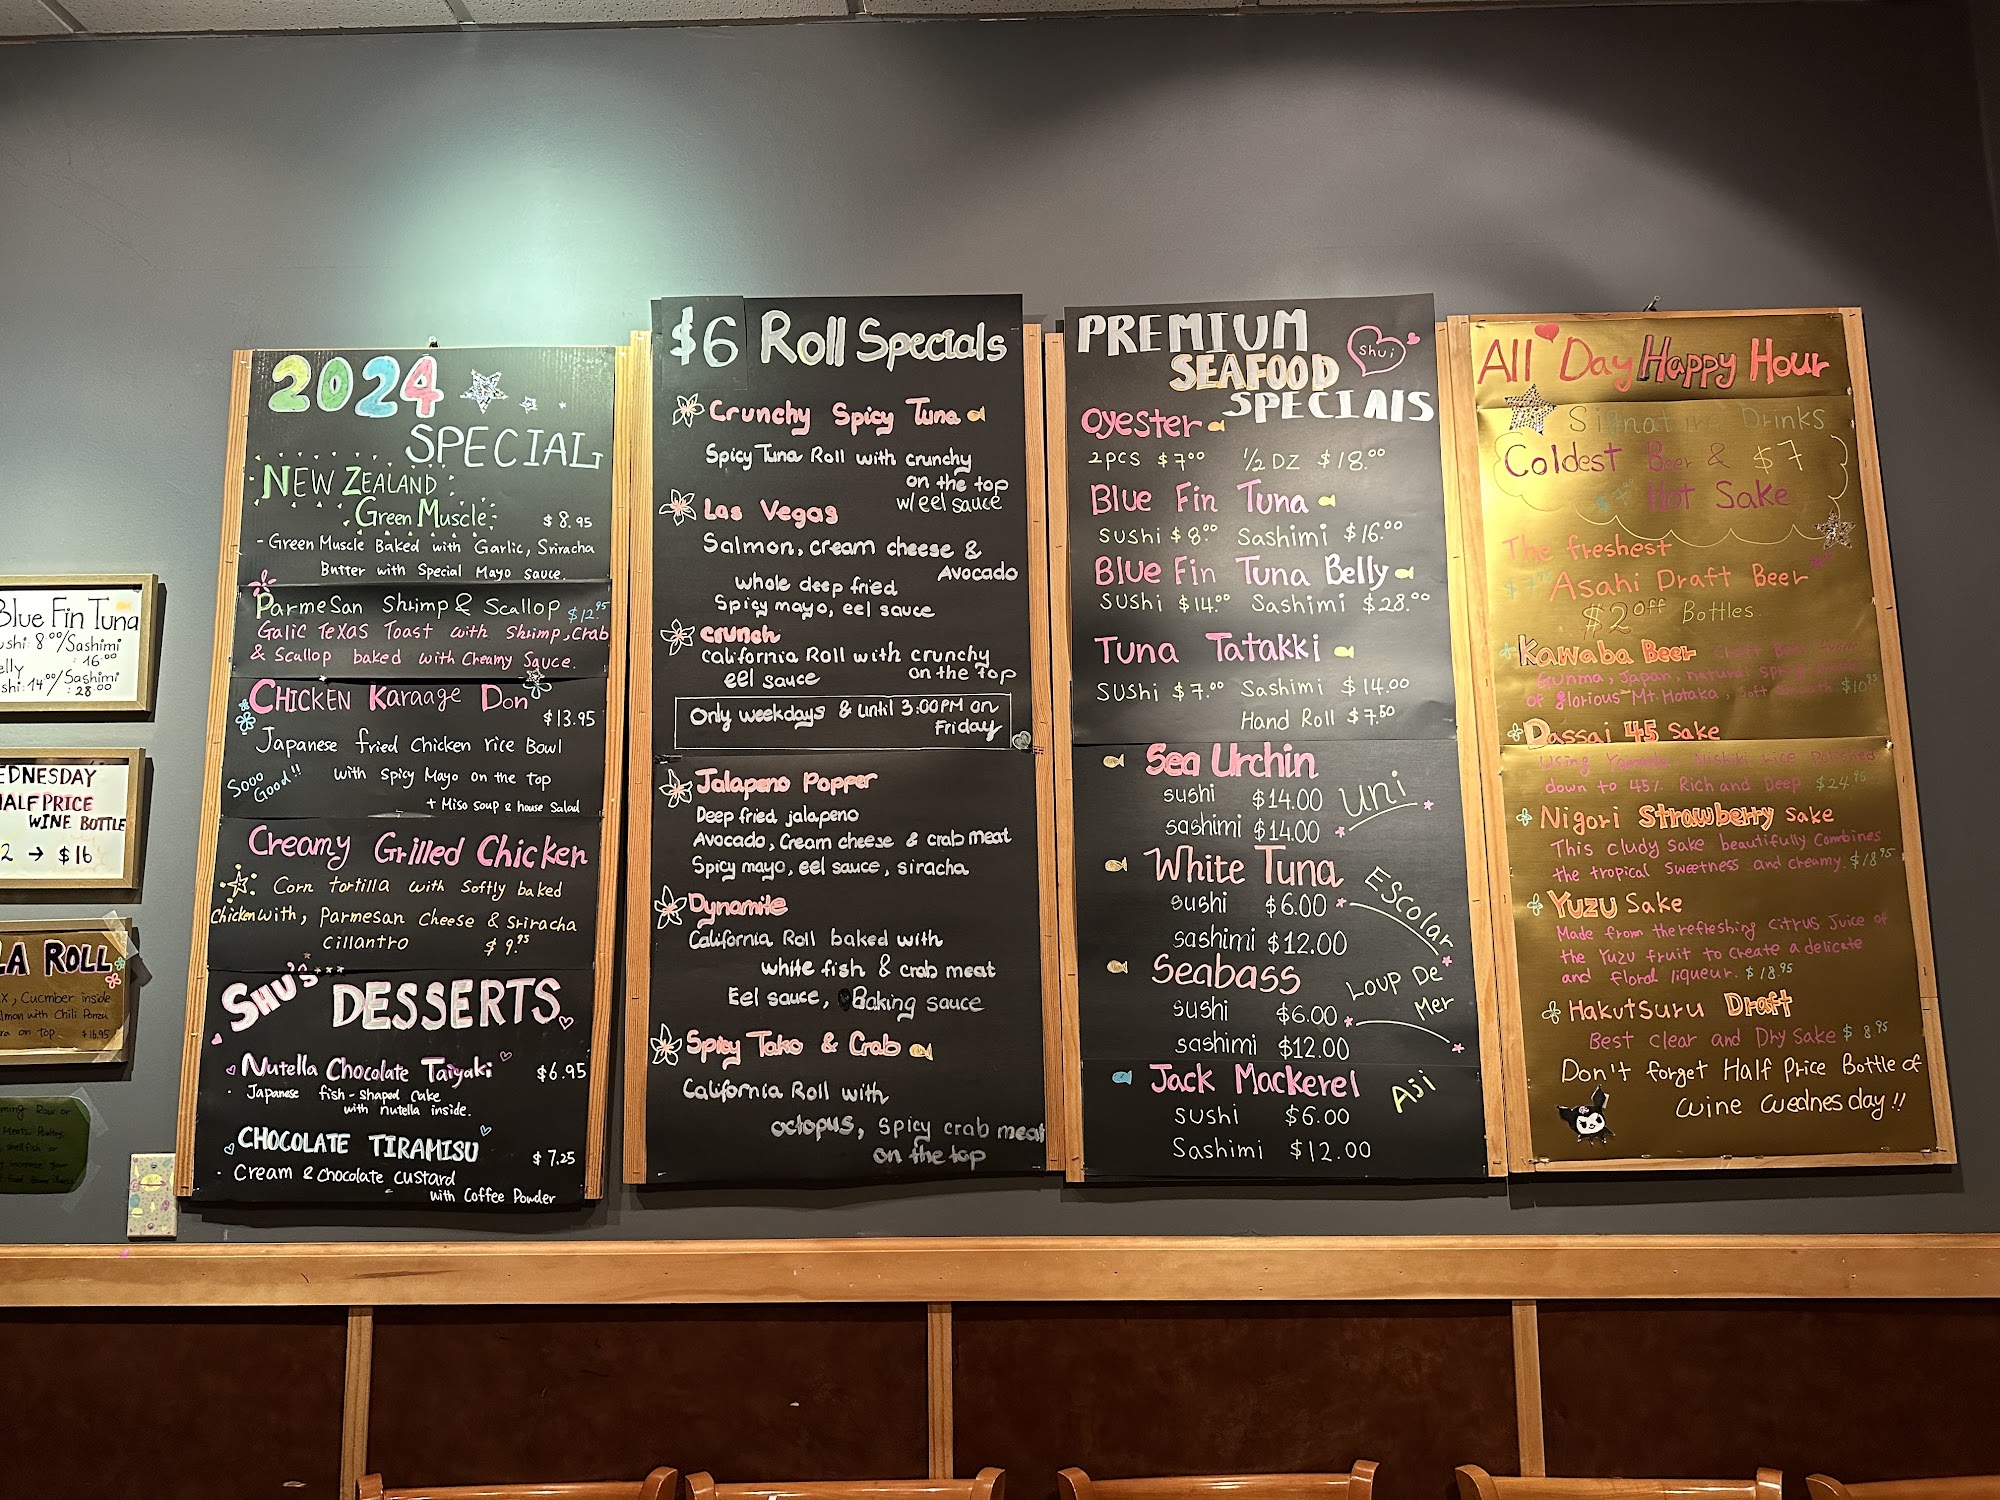 Blue Fin Tuna
shi: 8.00/Sashimi
: 16.00
elly
shi: 14.00/Sashimi
: 28.00
EDNESDAY
HALF PRICE
WINE BOTTLE
2 → $16
LA ROLL
x, Cucmber inside
lmon with Chili Ponzu
ra on top. $16.95
Raw or
2024
SPECIAL
NEW ZEALAND
Green Muscle $8.95
- Green Muscle Baked with Garlic, Sriracha
Butter with Special Mayo sauce.
Parmesan Shrimp & Scallop $12.95
Galic Texas Toast with Shrimp, Crab
& Scallop baked with Creamy Sauce.
CHICKEN Karaage Don
$13.95
Japanese fried chicken rice Bowl
with spicy Mayo on the top
Sooo
Good!!
+ Miso soup & house Salad
Creamy Grilled Chicken
Corn tortilla with Softly baked
Chicken with, Parmesan cheese & Sriracha
cillantro $9.95
SHU'S DESSERTS
Nutella Chocolate Taiyaki $6.95
· Japanese fish-shaped cake
with nutella inside.
CHOCOLATE TIRAMISU $7.25
· Cream & chocolate custard
with Coffee Powder
$6 Roll Specials
Crunchy Spicy Tuna
Spicy Tuna Roll with crunchy
on the top
w/eel sauce
Las Vegas
Salmon, cream cheese &
Avocado
whole deep fried
Spicy mayo, eel sauce
crunch
California Roll with crunchy
eel sauce on the top
Only weekdays & until 3:00PM on
Friday
Jalapeno Popper
Deep fried jalapeno
Avocado, Cream cheese & crab meat
Spicy mayo, eel sauce, siracha
Dynamite
California Roll baked with
white fish & crab meat
Eel sauce, Baking sauce
Spicy Tako & Crab
California Roll with
octopus, spicy crab meat
on the top
PREMIUM
shui
SEAFOOD
SPECIALS
Oyester
2PCS $7.00 1/2 DZ $18.00
Blue Fin Tuna
sushi $8.00 Sashimi $16.00
Blue Fin Tuna Belly
sushi $14.00 Sashimi $28.00
Tuna Tatakki
sushi $7.00 Sashimi $14.00
Hand Roll $7.50
Sea Urchin
sushi $14.00 Uni
sashimi $14.00
White Tuna
sushi $6.00 Escolar
sashimi $12.00
Seabass
sushi $6.00 Loup De
Mer
sashimi $12.00
Jack Mackerel
sushi $6.00 Aji
Sashimi $12.00
All Day Happy Hour
Signature Drinks
Coldest Beer & $7
Hot Sake
The freshest
Asahi Draft Beer
$2 off Bottles.
Kawaba Beer
Gunma, Japan, natural
of glorious Mt. Hotaka, $10.95
Dassai 45 Sake
Using Nishiki rice Polished
down to 45% Rich and Deep $24.95
Nigori Strawberry Sake
This cludy sake beautifully combines
the tropical sweetness and creamy. $18.95
Yuzu Sake
Made from the refreshing citrus juice of
the Yuzu fruit to create a delicate
and floral liqueur. $18.95
Hakutsuru Draft
Best clear and Dry Sake $8.95
Don't forget Half Price Bottle of
wine wednesday!!